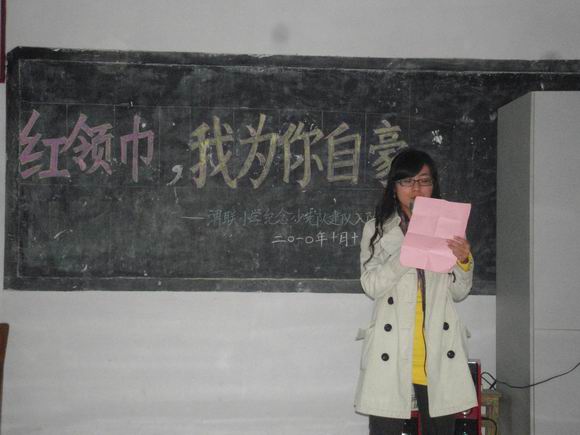 红领巾 我为你自豪
——渭联小学纪念少先队建队入队
二〇一〇年十月十